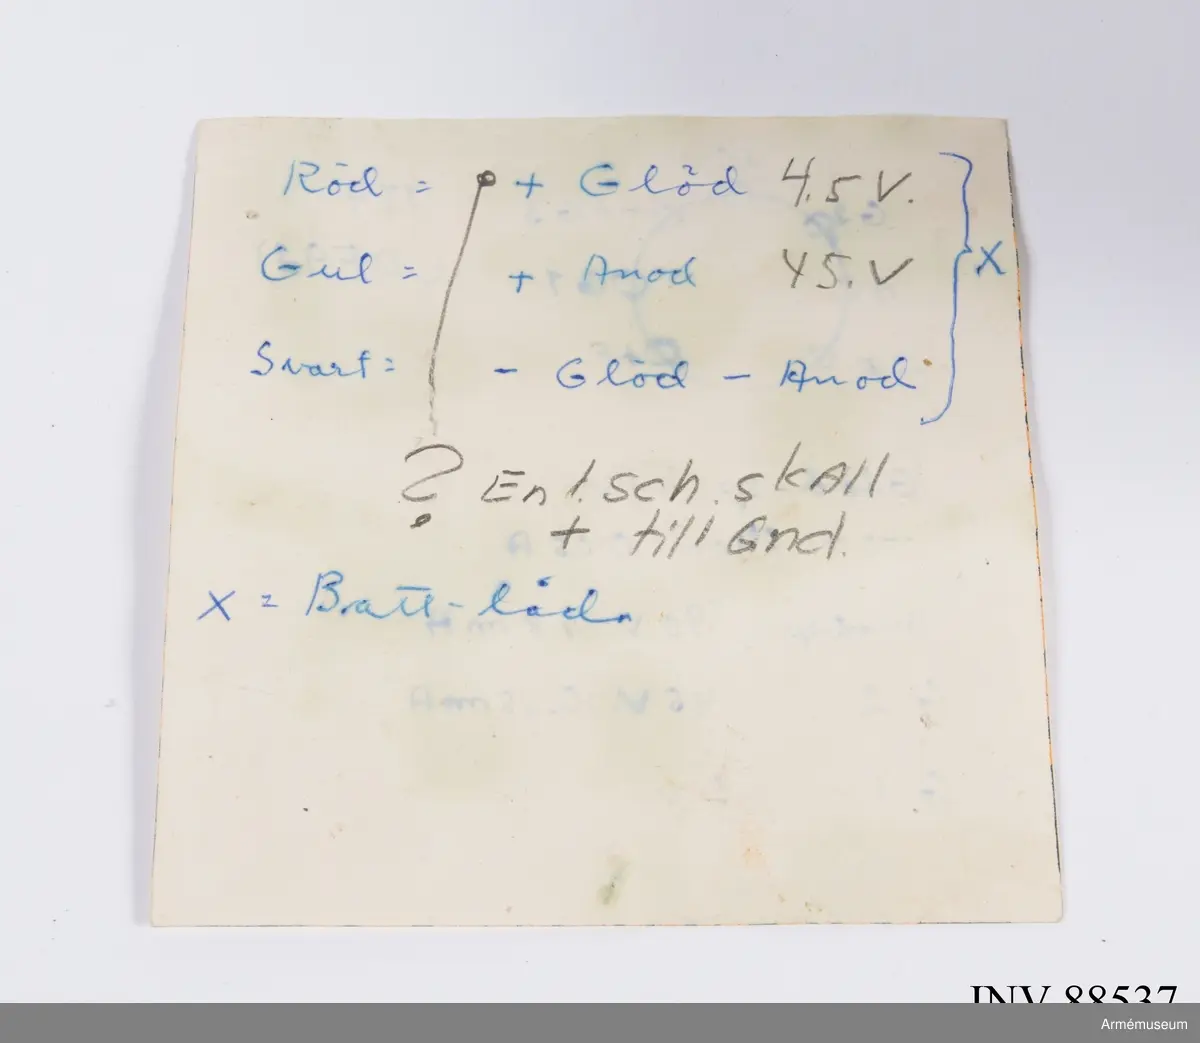 Röd = + Glöd 4.5 V.
Gul = + Anod 45. V } X
Svart = - Glöd - Anod
? Enl. sch. skAll
+ till Gnd.
X = Batt-låda
INV 88537
Armémuseum